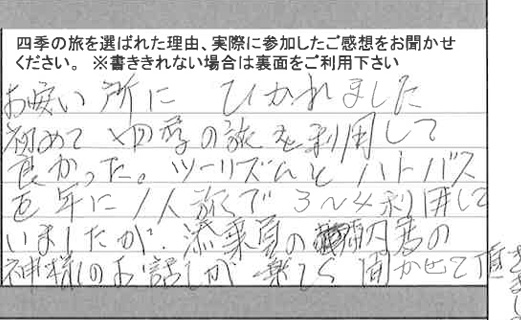 四季の旅を選ばれた理由、実際に参加したご感想をお聞かせ
ください。 ※書ききれない場合は裏面をご利用下さい
お安い所に ひかれました
初めて四季の旅を利用して
良かった。ツーリズムとハトバス
を年に1人旅で3〜4利用して
いましたが、添乗員の の
神様のお話しが楽しく聞かせて頂
きまし